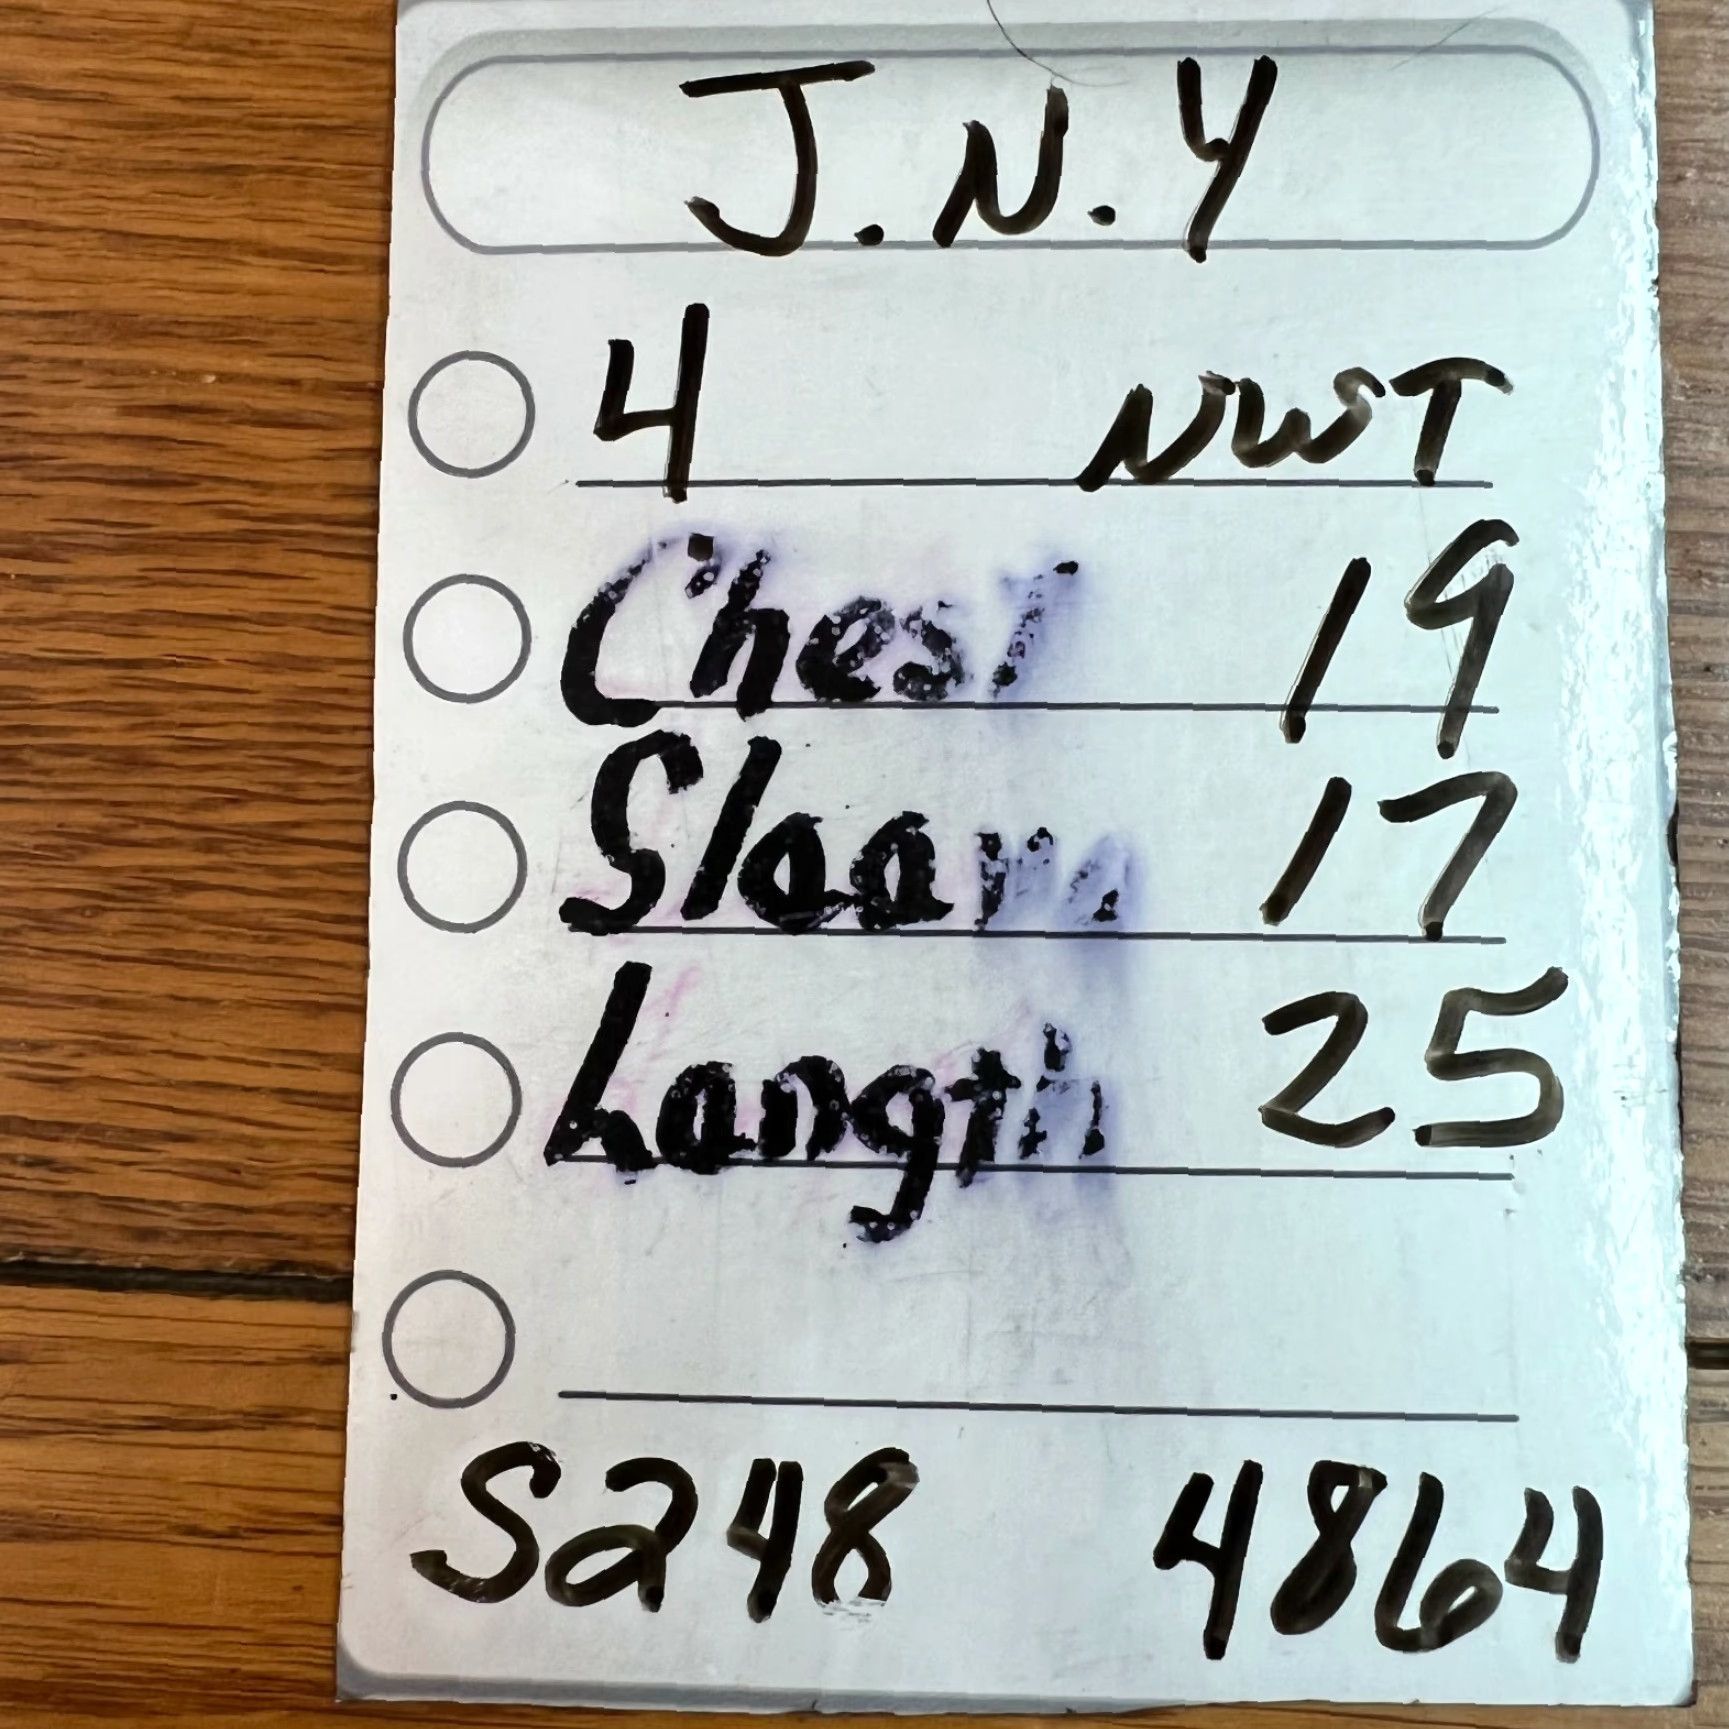 J.N.Y
4 NWST
Chest 19
Sleeve 17
Length 25
S248 4864